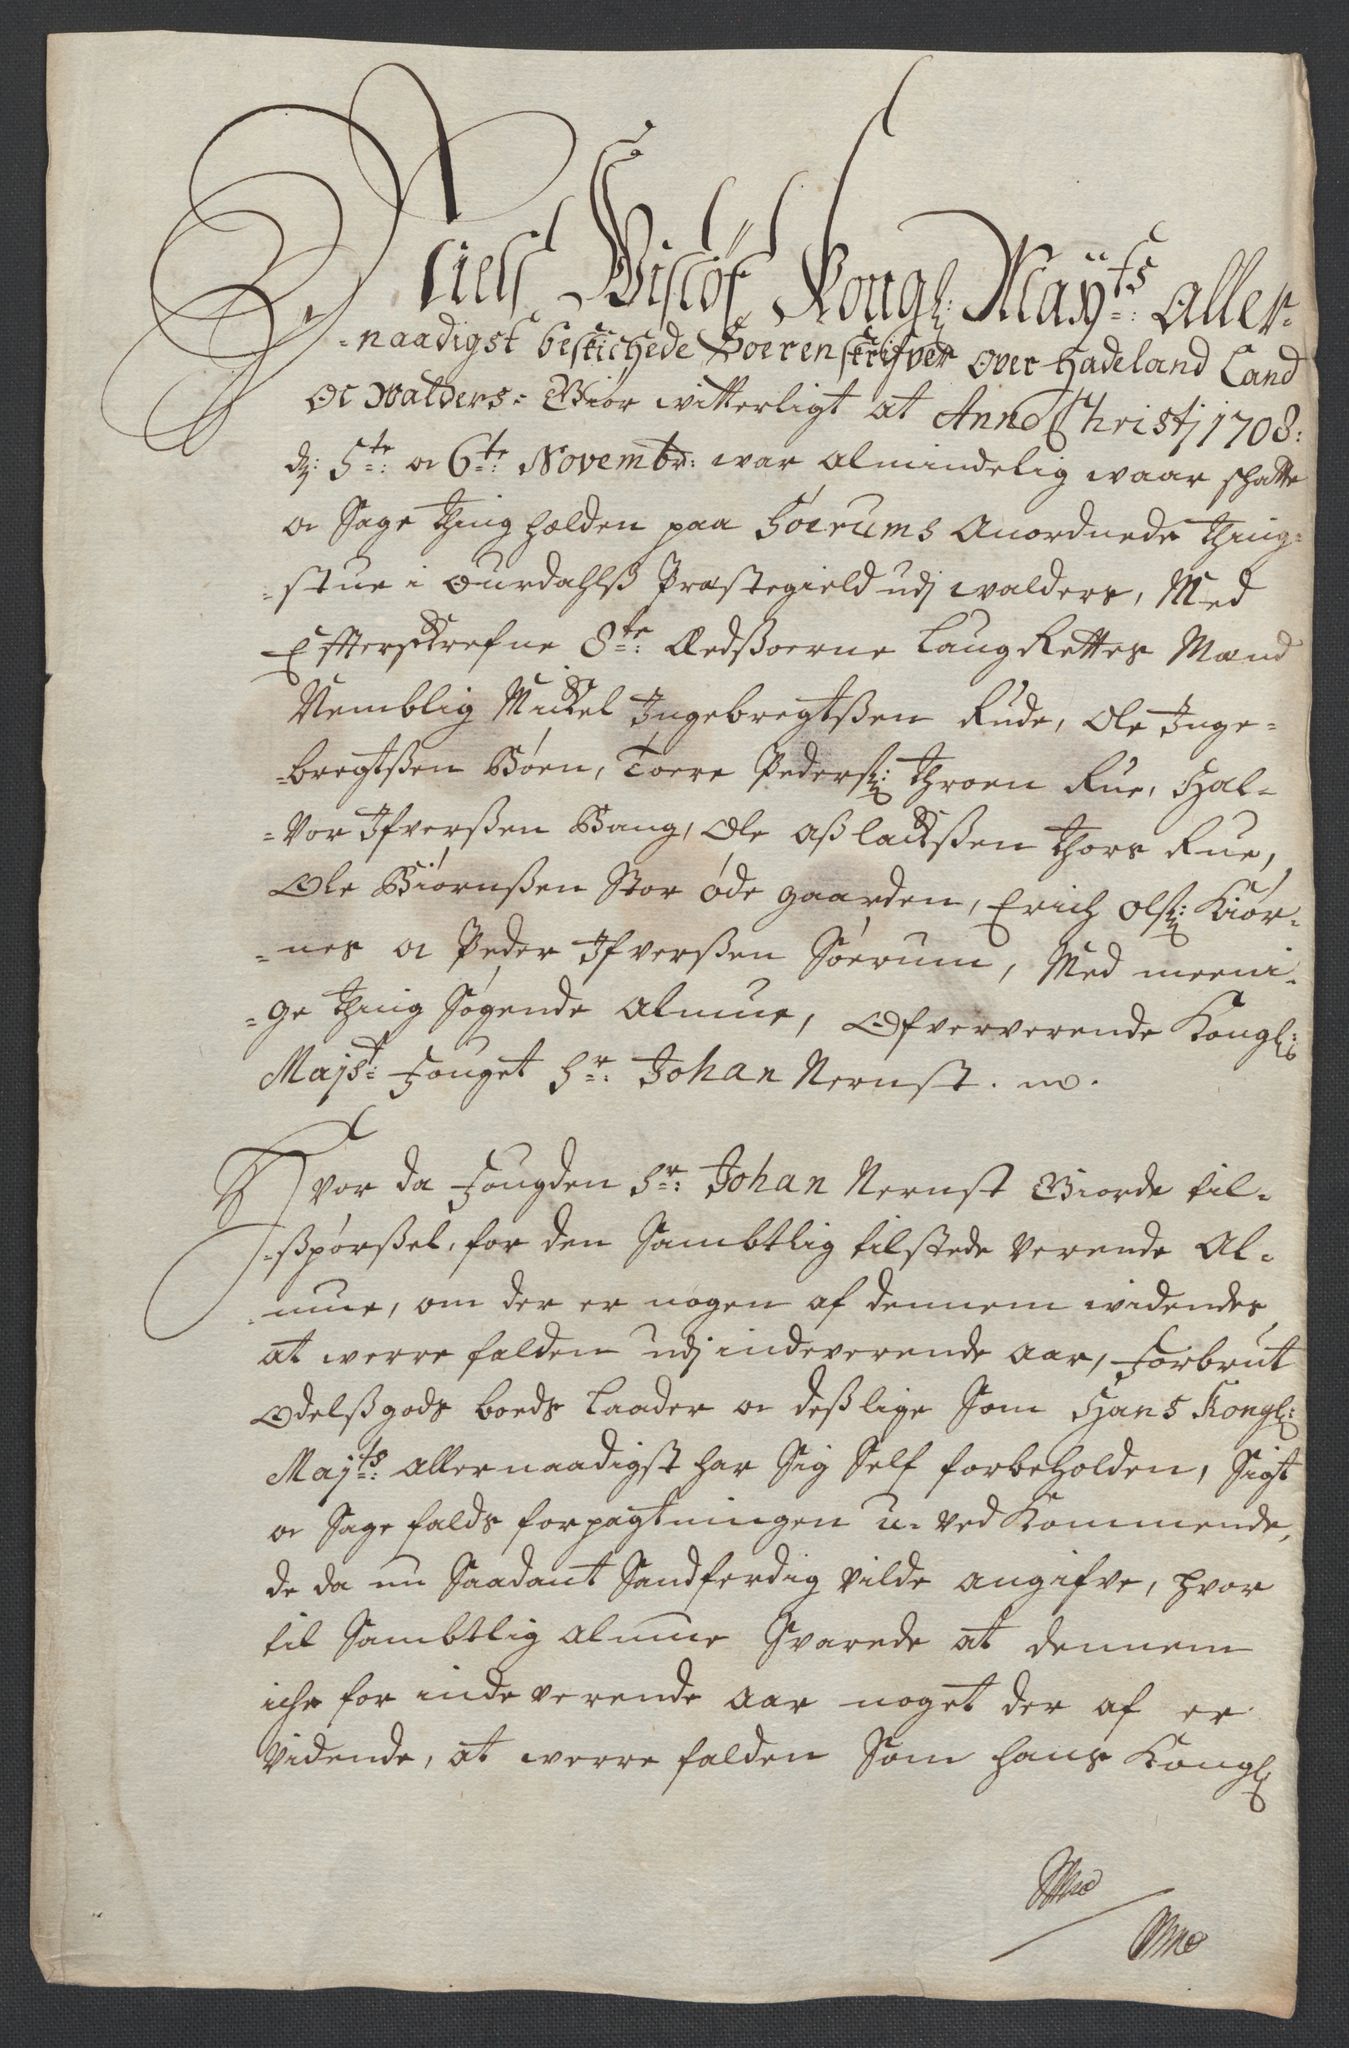 Niels Wislöf Kongl: May:ts Aller-
-naadigst bestichede Soerenskrifver over Hadeland Land
oc Walders- Giör witterligt at Anno Christj 1708:
dr: 5te: oc 6te: Novembr: war almindelig waar schatte
oc Sage Thing holden paa Söerums Anordnede Thing-
-stue i Ourdahlß Præstegield udj walders, Med
Effterschrefne 8te: Ædßoerne LaugRettes Mænd
Nemblig Mickel Ingebregtßen Rude, Ole Inge-
-bregtßen Böen, Toere Pederß: Throen Rue, Hal-
-vor Ifverßen Bang, Ole Aßlackßen Thors Rue,
Ole Biörnßen Stor Öde gaarden, Erich Olß: Kiör-
-nes oc Peder Ifverßen Söerum, Med meeni-
-ge Thing Sögende Almue, Ofververende Kongl:
Majst: Fouget Hr: Johan Nernst. m.
Hvor da Fougden Hr: Johan Nernst Giorde til-
-ßpörßel, for den Sambtlig tilstede verende Al-
-mue, om der er nogen af dennem widendes
at werre falden udj indeverende Aar, Forbrut
Odelßgods boeds Laader oc deßlige Som Hans Kongl:
Maj:ts Allernaadigst har Sig Self forbeholden, Sigt
oc Sage falds forpagtningen u-ved Kommende,
de da nu Saadant Sandferdig vilde angifve, hvor
til Sambtlig Almue Svarede at dennem
iche for indeverende Aar noget der af er
vidende, at werre falden Som hans Kongl